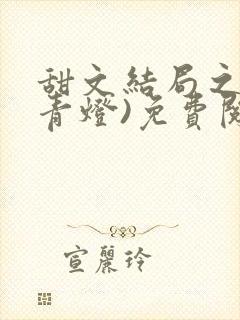 甜文結局之
青燈)免費閱
宣麗玲